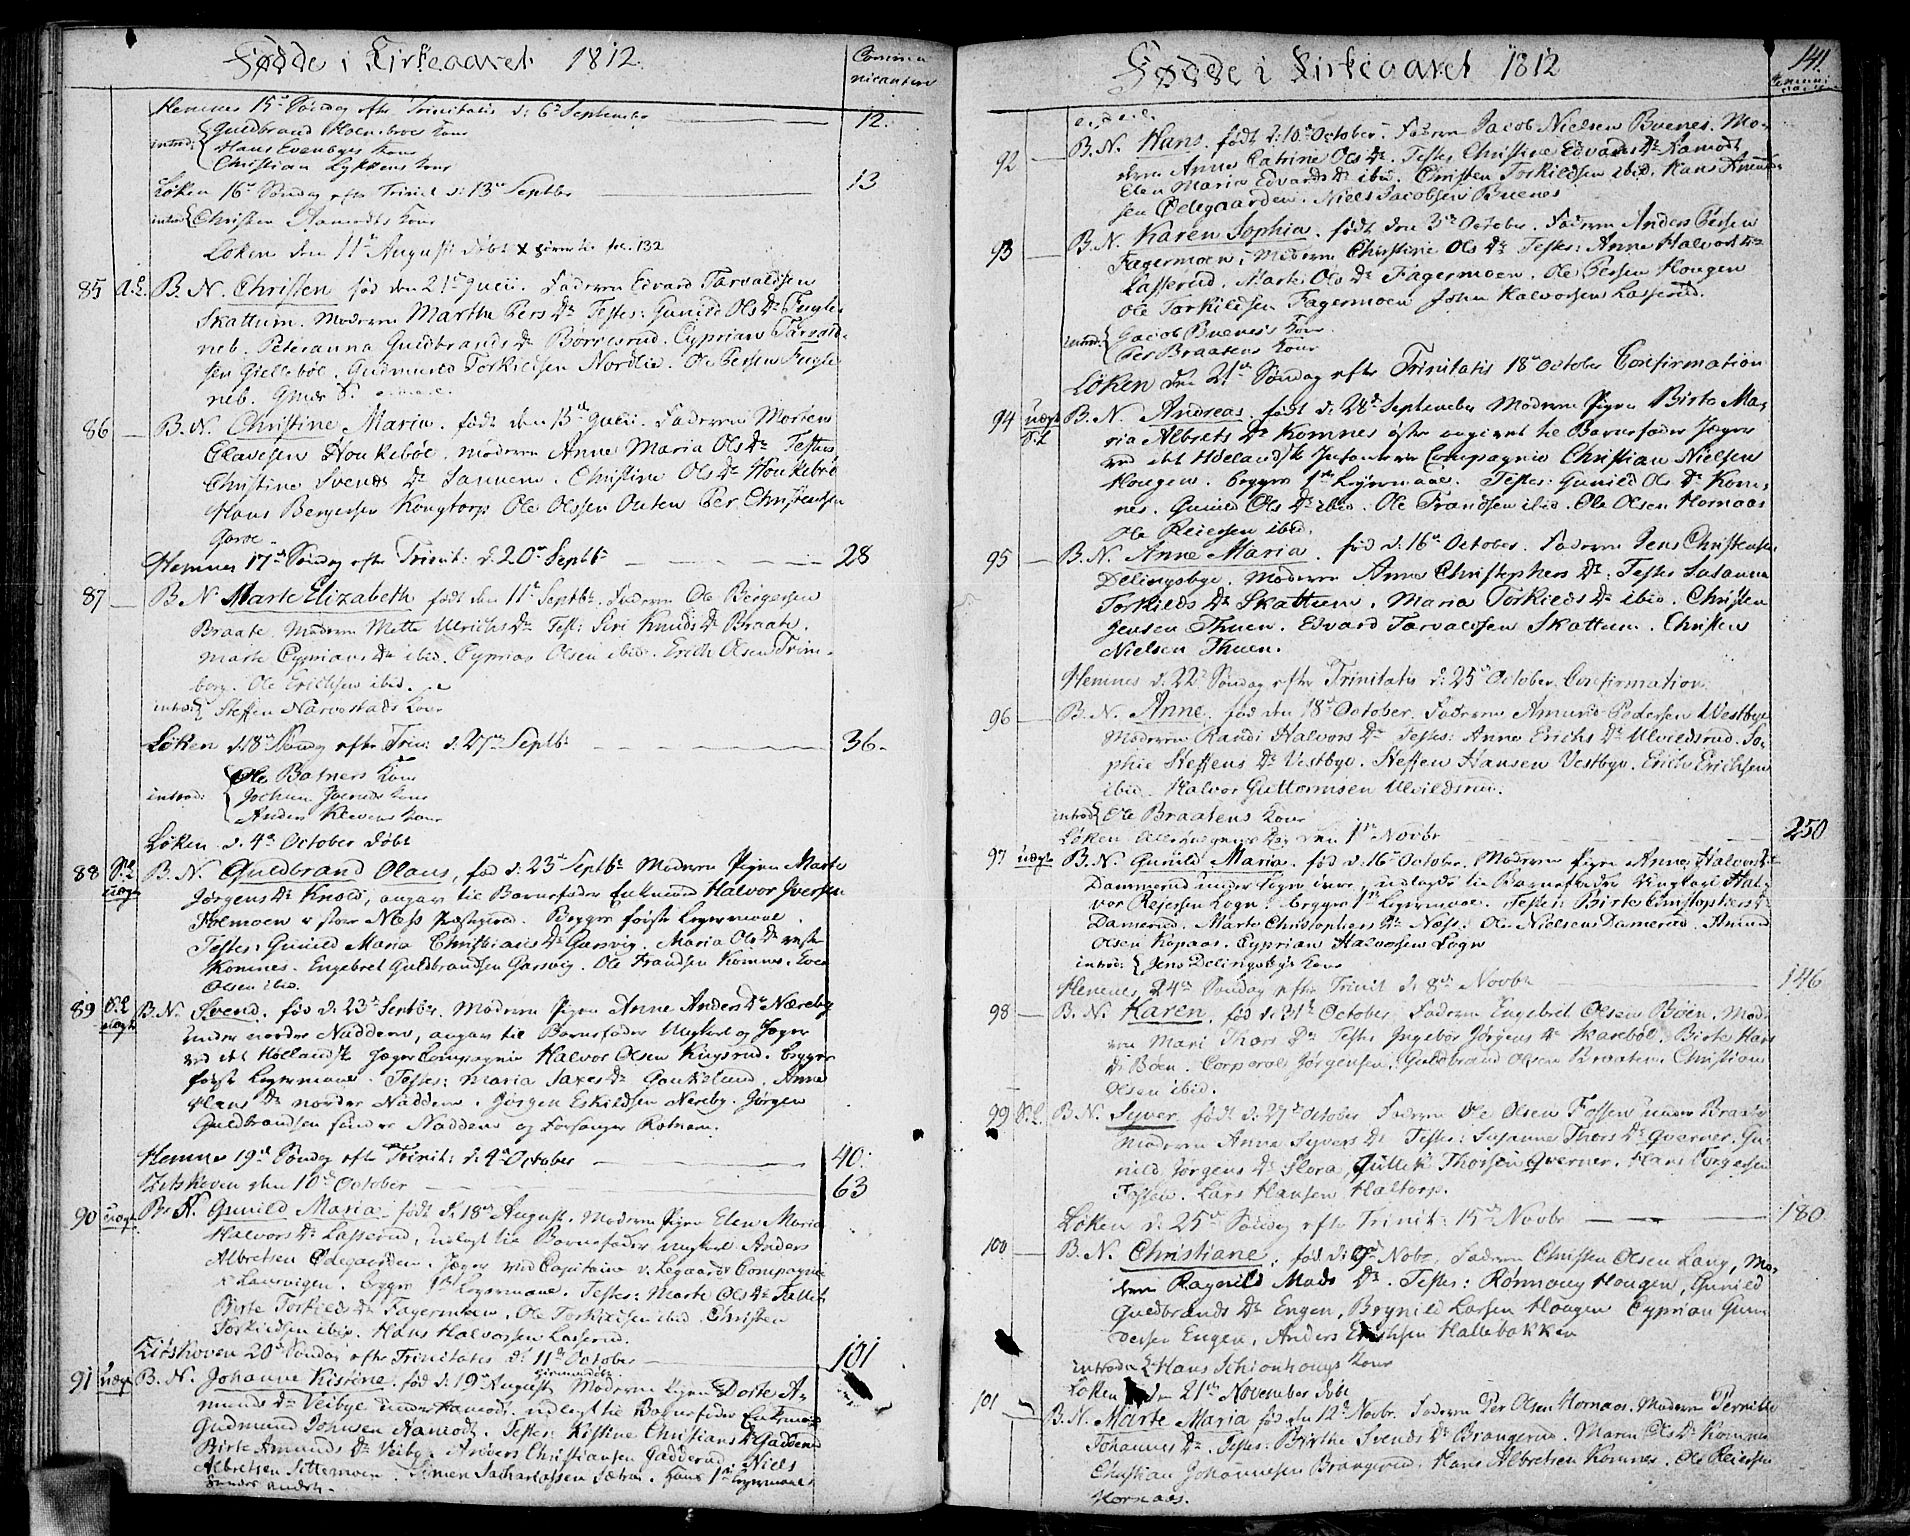 Fødde i Kirkeaaret 1812.
Commu
nicantere
Hemnes 15de Søndag efter Trinitatis d: 6te September 12.
introd: Guldbrand Haensbroes Kone
Hans Evenbyes Kone
Christian Lykkens Kone
Løken 16de Søndag efter Trinit d: 13de Septbr 13
introd Christen Hamodts Kone
Løken den 11te Augusti døbt
85 S.L. B. N. Christen fød den 21de Julii. Faderen Edvard Tarvaldsen
Skattum. Moderen Marthe Pers Dr Testes: Gunild Ols Dr Fugle-
neb. Peteranna Guldbrands Dr Børresrud. Cyprian Tarvald-
sen Giellebøl. Gudmund Torkildsen Nordlie. Ole Persen Fugle
neb.
86 — B. N. Christine Maria. født den 13de Julii. Faderen Morten
Olavesen Houkebøl. Moderen Anne Maria Ols Dr Testes
Christine Svends Dr Sannem. Christine Ols Dr Houkebøl
Hans Bergersen Kongtorp Ole Olssen Outen Per Christensen
Garve.
Hemnes 17de Søndag efter Trinit: d. 20de Septbr 28
87 — B. N. Marte Elizabeth født den 11te Septbr. Faderen Ole Bergersen
Braate. Moderen Mette Ulrichs Dr Test: Siri Knuds Dr Braate.
Marte Cyprians Dr ibid. Cyprian Olsen ibid. Erich Olsen Trim-
borg. Ole Erichsen ibid.
introd Steffen Narvestads Kone
Løken d. 18de Søndag efter Trin: d. 27de Septbr 36.
introd: Ole Botners Kone
Jochum Kone
Anders Klevens Kone
Løken d. 4de October døbt
88 S.L. uægte B. N. Guldbrand Olaus, fød d. 23de Septbr Moderen Pigen Marte
Jørgens Dr Knold, angav til Barnefader Enkemand Halvor Iversen
Holmoen i store Næss Præstegield. Begges første Leiermaal.
Testes: Gunild Maria Christians Dr Garsvig. Maria Ols Dr vestre
Komnes. Engebret Guldbrandsen Garsvig. Ole Frandsen Komnes. Even
Olsen ibid.
89 S.L. uægte B. N. Svend. fød d. 23de Septbr. Moderen Pigen Anne Anders Dr Næreby
under nordre Naddum, angav til Barnefader Ungkarl og Jæger
ved det Hølandsk Jæger Compagnie Halvor Olsen Kingsrud. begges
første Leiermaal. Testes: Maria Saxes Dr Gouteslund. Anne
Hans Dr nordre Naddum. Jørgen Eskildsen Næreby. Jørgen
Guldbrandsen søndre Naddum og Forsanger Rotnem.
Hemnes 19de Søndag efter Trinit: d. 4de October 40.
Zitshoven den 10de October 63
90 uægte B. N. Gunild Maria. født d. 18de August. Moderen Pigen Elen Maria
Halvors Dr Lasserud, udlagt til Barnefader ungkarl Anders
Albretsen Ødegaarden. Jæger ved Capitaine v. Legaards Compagnie
i Laurvigen. begges 1ste Leiermaal. Testes: Marte Ols Dr
Birte Torkilds Dr Fagermoen. Ole Torkildsen ibid. Christen
Torkildsen ibid. Hans Halvorsen Lasserud.
Zitshoven 20de Søndag efter Trinitatis d. 11te October 101
91 uægte B. N. Johanne Kistine. fød d. 19de August Moderen Pigen Dorte A-
hiemmedøbt
munds Dr Veibye under Hamodt. udlagt til Barnefader Enkemand
Gudmund Johnsen Hamodt. Testes: Kistine Christians Dr Gadderud
Birte Amunds Dr Veibye. Anders Christiansen Gadderud. Niels
Albretsen Sittermoen. Simen Sachariassen Sætra. hans 1ste Leiermaal
hendes andet.
Fødde i Kirkeaaret 1812
141.
Commu:
eodem die
92 — B. N. Hans. født d. 10de October. Faderen Jacob Nielsen Buenes. Mo-
deren Anne Catrine Ols Dr. Testes Christine Edvards Dr Hamodt
Elen Maria Edvards Dr ibid. Christen Torkildsen ibid. Hans Amund-
sen Ødegaarden. Niels Jacobsen Buenes
93 — B. N. Karen Sophia. født den 3de October. Faderen Anders Persen
Fagermoen, Moderen Christine Ols Dr Testes: Anne Halvors Dr
Lasserud. Marte Ols Dr Fagermoen. Ole Persen Hougen
Ole Torkildsen Fagermoen John Halvorsen Lasserud.
introd: Jacob Buenes's Kone.
Per Braatens Kone
Løken den 21de Søndag efter Trinitatis 18de October Confirmation
94 uægte S.L. B. N. Andreas. født d. 28de September Moderen Pigen Birte Ma-
ria Albrets Dr Komnes østre angivet til Barnefader Jæger
ved det Hølandsk Infanterie Compagnie Christian Nielsen
Hougen. begges 1ste Leiermaal. Testes: Gunild Ols Dr Kom-
nes. Gunild Ols Dr ibid. Ole Frandsen ibid. Ole Olsen Hornaas
Ole Reiersen ibid.
95 — B. N. Anne Maria. fød d. 16de October. Faderen Jens Christensen
Delingsbye. Moderen Anne Christophers Dr: Testes Susanna
Torkilds Dr Skattum. Maria Torkilds Dr ibid. Christen
Jensen Thuen. Edvard Tarvaldsen Skattum. Christen
Nielsen Thuen.
Hemnes d. 22de Søndag efter Trinitatis d. 25de October. Confirmation.
96 — B. N. Anne. fød den 18de October. Faderen Amund Pedersen Westbye
Moderen Randi Halvors Dr Testes: Anne Erichs Dr Ulvildsrud. So-
phie Steffens Dr Vestbye. Steffen Hansen Vestbye. Erich Erichsen
ibid. Halvor Guttormsen Ulvildsrud.
introd Ole Braatens Kone
Løken Allehelgens Dag den 1ste Novbr 250
97 uægte B. N. Gunild Maria. fød d. 16de October. Moderen Pigen Anne Halvors Dr
Dammerud under udlagde til Barnefader Ungkarl Hal-
vor Reiersen Sogn. begges 1ste Leiermaal. Testes: Birte Christophers Dr
Damerud. Marte Christophers Dr Næss. Ole Nielsen Damerud. Amund
Olsen Kopaas. Cyprian Halvorsen Sogn
introd: Jens Delingsbyes Kone
Hemnes 24de Søndag efter Trinit d. 8de Novbr 146
98 — B. N. Karen. fød d. 31te October. Faderen Engebret Olsen Bøen. Mod-
ren Mari Thors Dr Testes Ingebor Jørgens Dr Skarebøl. Birte Hans
Dr Bøen. Corporal Jørgensen. Guldbrand Olsen Braaten. Christian
Olsen ibid.
99 S.L. B. N. Syver. født d. 27de October Faderen Ole Olsen Fossen under Braate
Moderen Anne Syvers Dr Testes: Susanne Thors Dr Qverner. Gu-
nild Jørgens Dr Flora, Gullik Thorsen Qverner. Hans Torgersen
Fossen. Lars Hansen Haltorp.
Løken d. 25de Søndag efter Trinit: 15de Novbr 180.
100 — B. N. Christiane. fød d. 9de Novbr. Faderen Christen Olsen Lang, Mo-
deren Ragnild Mads Dr. Testes: Rønnoug Hougen, Gunild
Guldbrands Dr Engen, Brynild Larsen Hougen Cyprian Gun
dersen Engen, Anders Erichsen Hallebakken
introd Hans Schionhougs Kone
Løken den 21de November døbt
101 — B. N. Marte Maria fød den 12te Novbr. Faderen Per Olsen Hornaas. Moderen Pernille
Johannes Dr. Testes: Birthe Svends Dr Brangerud. Maren Ols Dr Komnes
Christian Johannesen Brangerud. Hans Albretsen Komnes. Ole Reiersen
Hornaas.